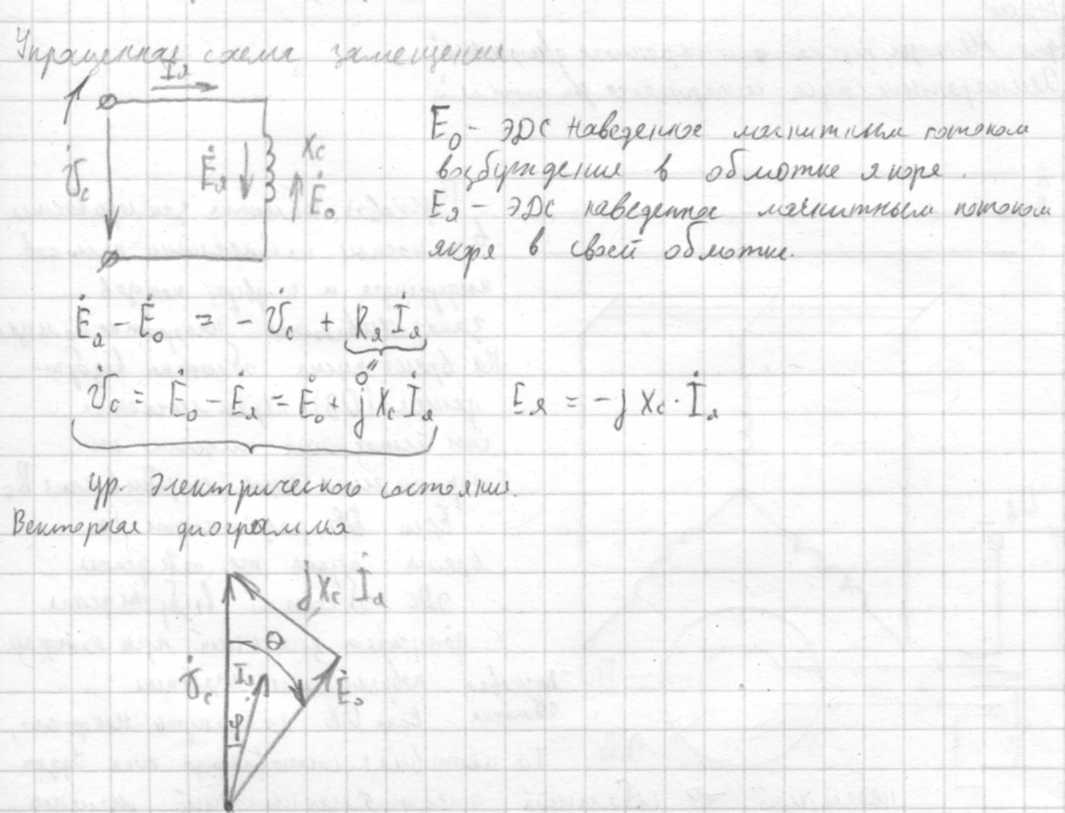 Упрощенная схема замещения
İя
U̇с
Ėя
Xс
Ė₀
E₀ - ЭДС наведенное магнитным потоком
возбуждение в обмотке якоря.
Eя - ЭДС наведенное магнитным потоком
якоря в своей обмотке.
Ėя - Ė₀ = - U̇с + Rя İя
0
U̇с = Ė₀ - Ėя = Ė₀ + j Xс İя
Eя = - j Xс · İя
ур. Электрического состояние.
Векторная диограмма
j Xс İя
θ
U̇с
İя
Ė₀
φ